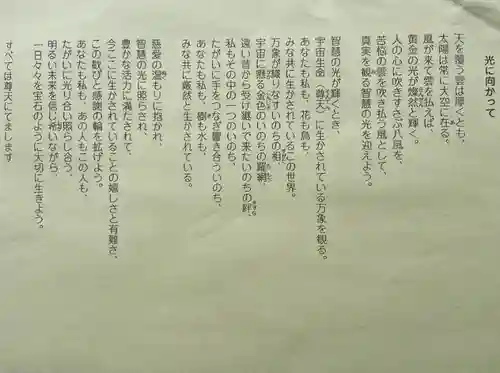 光に向かって
天を覆う雲は厚くとも、
太陽は常に大空に在る。
風が来て雲を払えば、
黄金の光が燦然と輝く。
人の心に吹きすさぶ八風を、
苦悩の雲を吹き払う風として、
真実を観る智慧の光を迎えよう。
智慧の光が輝くとき、
宇宙生命（尊天）に生かされている万象を観る。
あなたも私も、花も鳥も、
みな共に生かされているこの世界。
万象が織りなすいのちの相、
宇宙に懸る金色のいのちの羅網、
遠い昔から受け継いで来たいのちの絆、
私もその中の一つのいのち、
たがいに手をつなぎ響き合ういのち、
あなたも私も、樹も水も、
みな共に厳然と生かされている。
慈愛の温もりに抱かれ、
智慧の光に照らされ、
豊かな活力に満たされて、
今ここに生かされていることの嬉しさと有難さ、
この歓びと感謝の輪を拡げよう。
あなたも私も、あの人もこの人も、
たがいに光り合い照らし合う、
明るい未来を信じ希いながら、
一日々々を宝石のように大切に生きよう。
すべては尊天にてまします